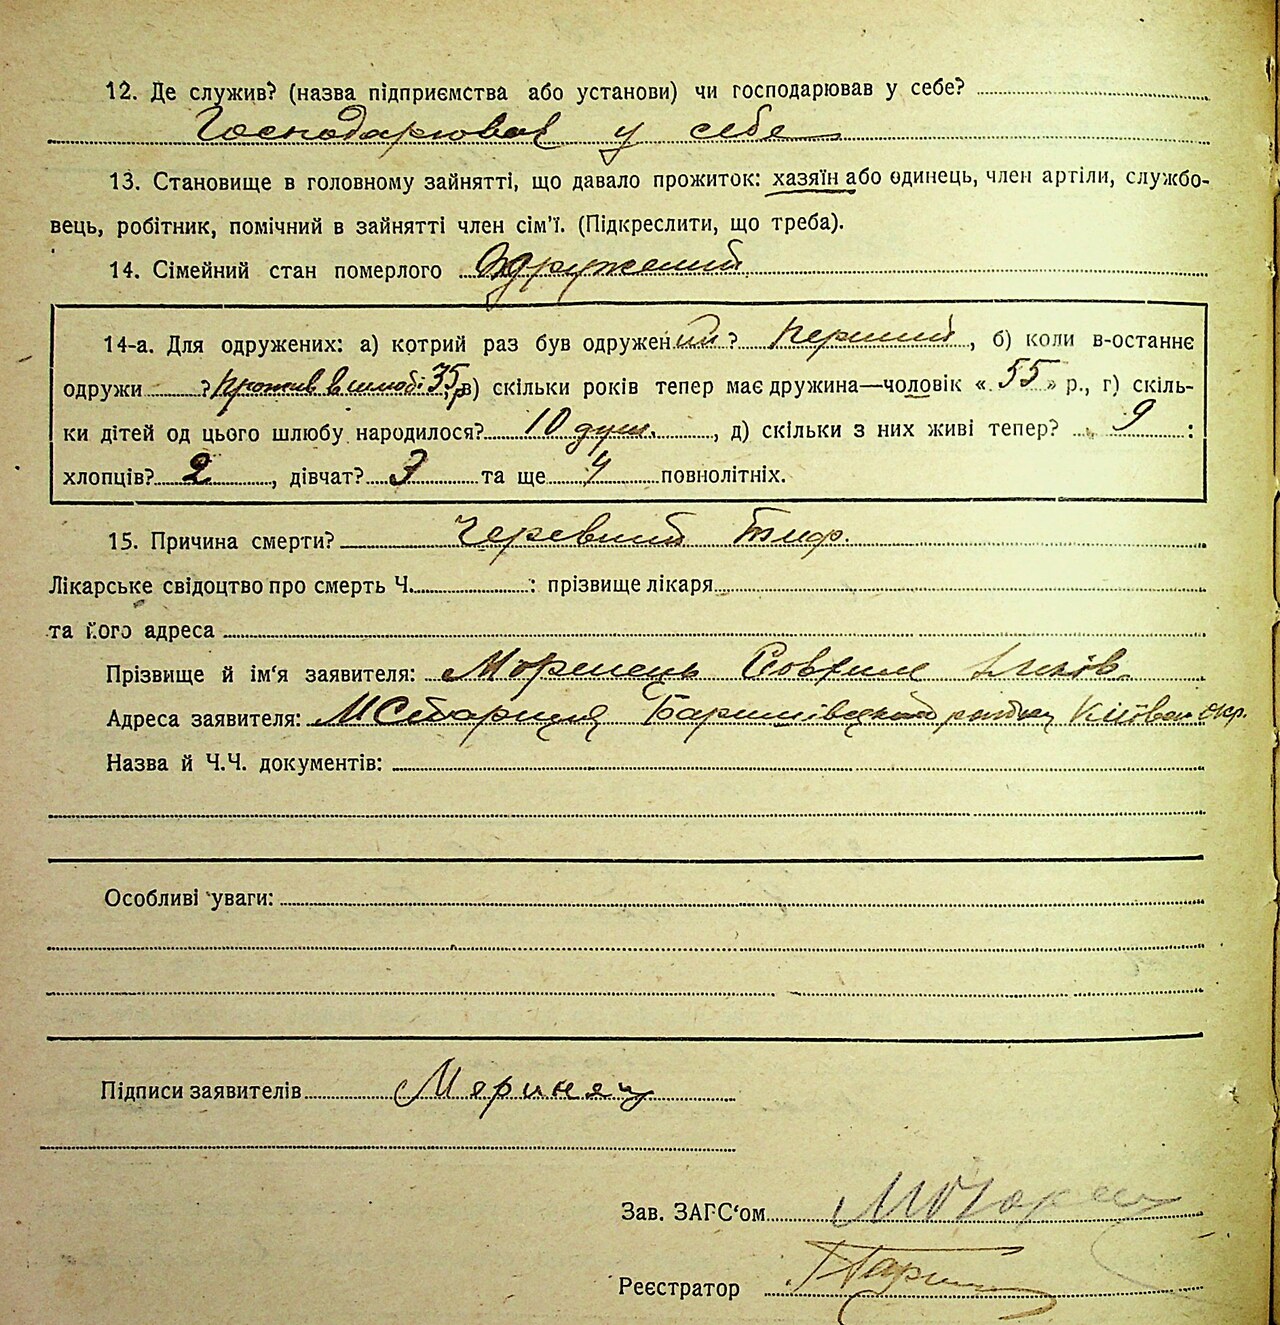 12. Де служив? (назва підприємства або установи) чи господарював у себе?
Господарював у себе
13. Становище в головному зайнятті, що давало прожиток: хазяїн або одинець, член артіли, службо-
вець, робітник, помічний в зайнятті член сім'ї. (Підкреслити, що треба).
14. Сімейний стан померлого Одружений
14-а. Для одружених: а) котрий раз був одружений? Перший, б) коли в-останнє
одружи ? Прожив в шлюбі 35 р в) скільки років тепер має дружина—чоловік « 55 » р., г) скіль-
ки дітей од цього шлюбу народилося? 10 душ., д) скільки з них живі тепер? 9 :
хлопців? 2, дівчат? 3 та ще 4 повнолітніх.
15. Причина смерти? Черевний тиф.
Лікарське свідоцтво про смерть Ч. : прізвище лікаря
та його адреса
Прізвище й ім'я заявителя:
Адреса заявителя: М Стариця Баришівського району Київськ окр.
Назва й Ч.Ч. документів:
Особливі уваги:
Підписи заявителів
Зав. ЗАГС'ом
Реєстратор